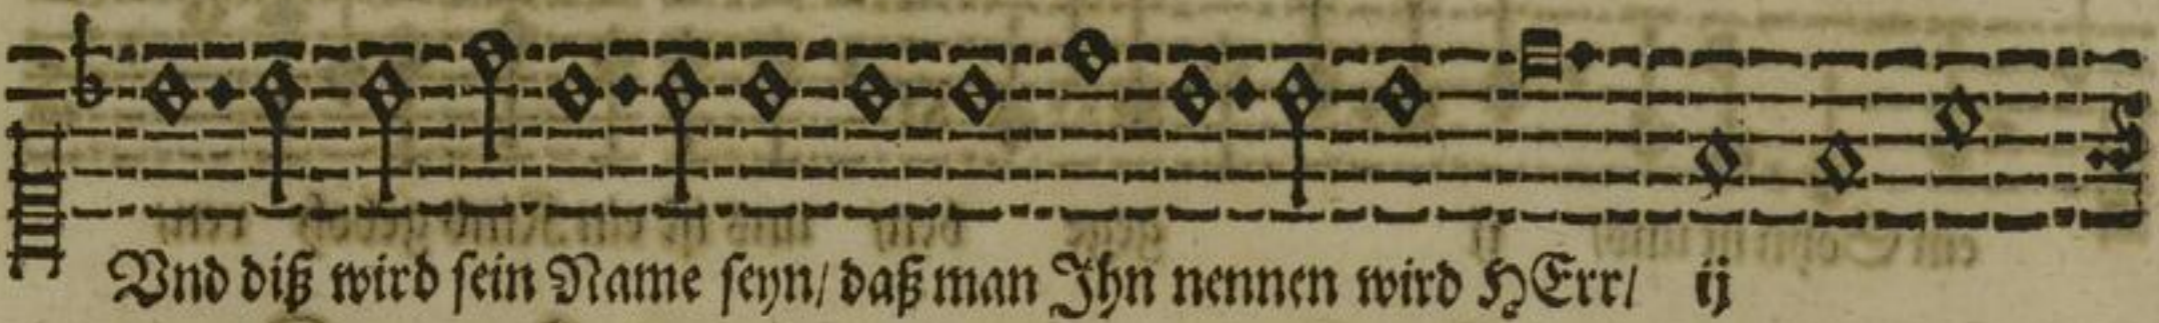 Vnd diß wird ſein Name ſeyn/ daß man Jhn nennen wird HErr/ ij